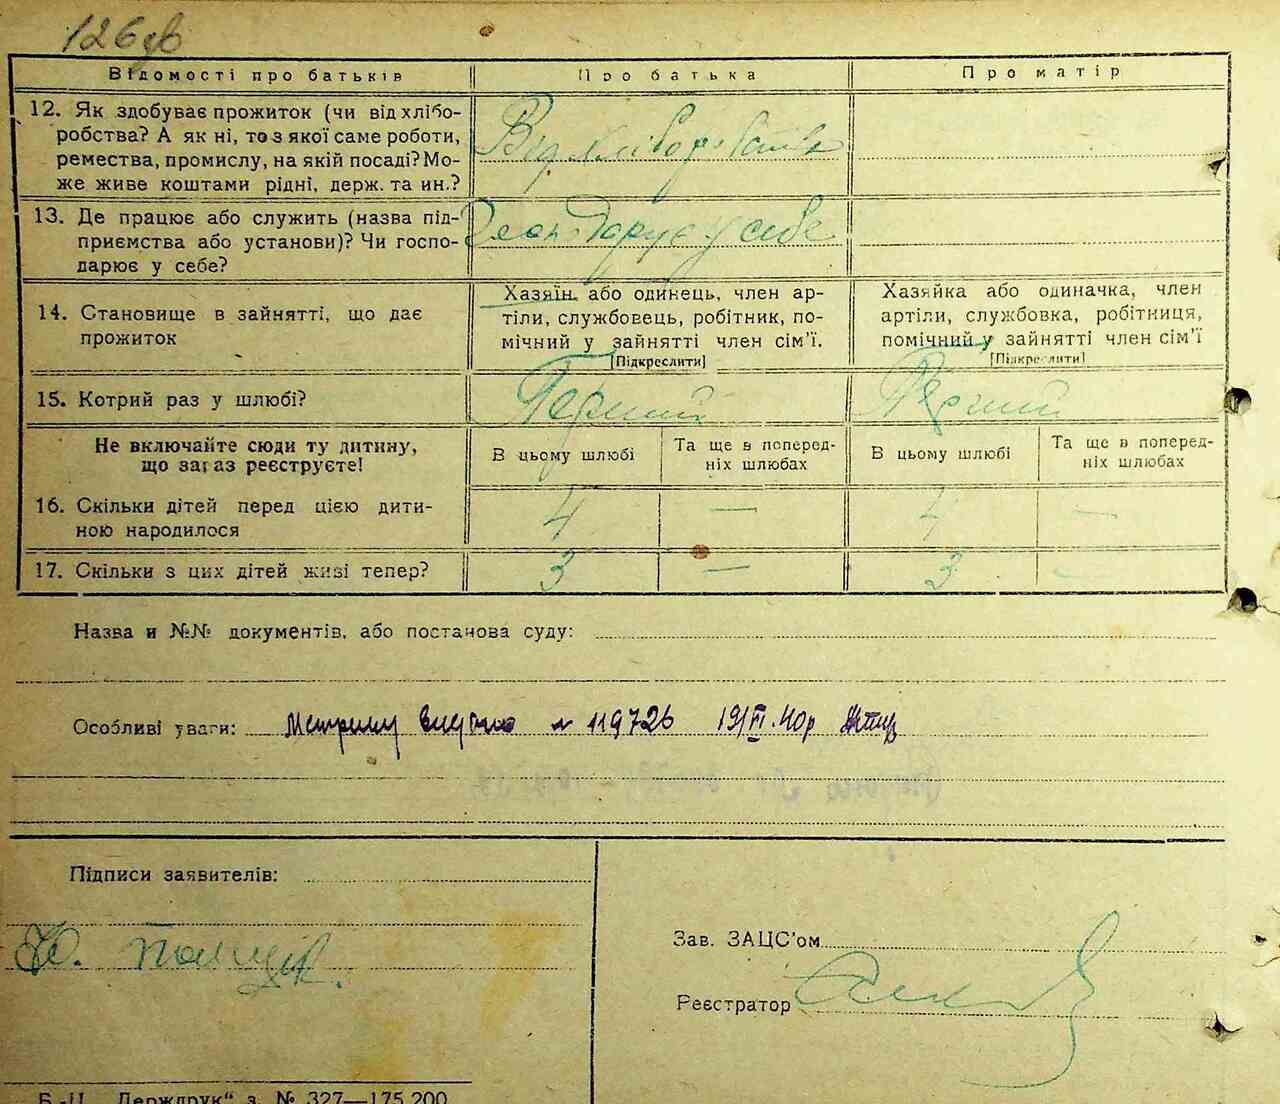 126 зв
Відомості про батьків
Про батька
Про матір
12. Як здобуває прожиток (чи від хлібо-
робства? А як ні, то з якої саме роботи,
ремества, промислу, на якій посаді? Мо-
же живе коштами рідні, держ. та ин.?
Від хліборобства
13. Де працює або служить (назва під-
приємства або установи)? Чи госпо-
дарює у себе?
Господарує у себе
14. Становище в зайнятті, що дає
прожиток
Хазяїн, або одинець, член ар-
тілі, службовець, робітник, по-
мічний у зайнятті член сім'ї.
[Підкреслити]
Хазяйка або одиначка, член
артілі, службовка, робітниця,
помічний у зайнятті член сім'ї
[Підкреслити]
15. Котрий раз у шлюбі?
Перший
Перший
Не включайте сюди ту дитину,
що зараз реєструєте!
В цьому шлюбі
Та ще в поперед-
ніх шлюбах
В цьому шлюбі
Та ще в поперед-
ніх шлюбах
16. Скільки дітей перед цією дити-
ною народилося
4 — 4 —
17. Скільки з цих дітей живі тепер?
3 — 3 —
Назва и №№ документів, або постанова суду:
Особливі уваги: Метрику видано № 119726 19/VI.40р
Підписи заявителів:
Ю.
Зав. ЗАЦС'ом
Реєстратор
Б.-Ц. „Держдрук“ з. № 327—175.200